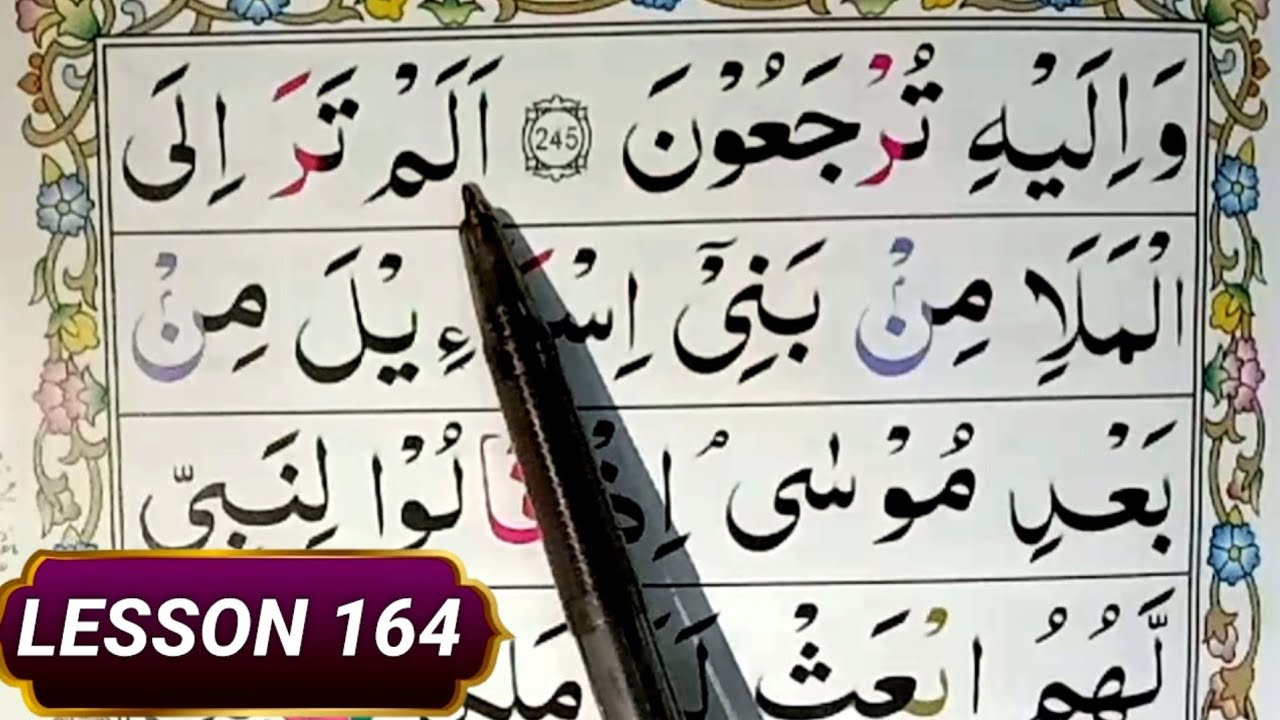 وَاِلَيْهِ تُرْجَعُوْنَ 245 اَلَمْ تَرَ اِلَى
الْمَلَاِ مِنْۢ بَنِيْٓ اِسْرَآءِيْلَ مِنْۢ
بَعْدِ مُوْسٰى ۘ اِذْ قَالُوْا لِنَبِيٍّ
لَّهُمُ ابْعَثْ
LESSON 164